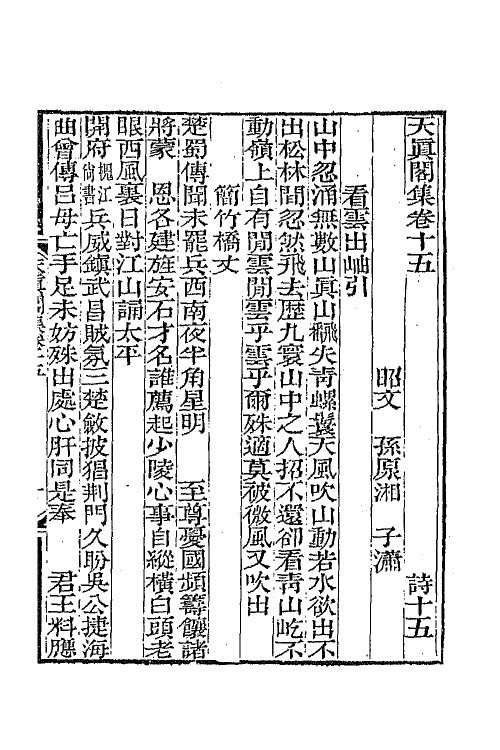 天眞閣集卷十五　詩十五
昭文　孫原湘　子瀟
看雲出岫引
山中忽涌無數山眞山飜失靑螺鬟天風吹山動若水欲出不
出松林間忽然飛去歷九寰山中之人招不還卻看靑山屹不
動嶺上自有閒雲閒雲乎雲乎爾殊適莫被微風又吹出
簡竹橋丈
楚蜀傳聞未罷兵西南夜半角星明　至尊憂國頻籌饟諸
將蒙　恩各建旌安石才名誰薦起少陵心事自縱橫白頭老
眼西風裏日對江山誦太平
開府槐江尙書兵威鎭武昌賊氛三楚敢披猖荆門久盼吳公捷海
曲曾傳呂母亡手足未妨殊出處心肝同是奉　君王料應